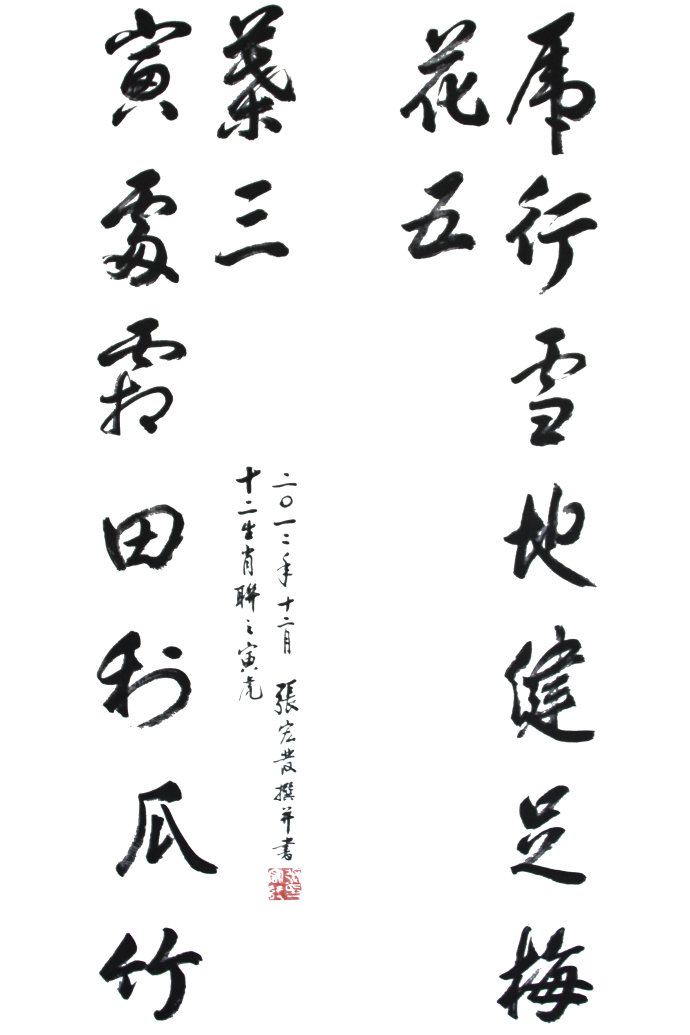 虎行雪地健足梅
花五
寅處霜田利爪竹
葉三
二〇一二年十二月 張宏發撰并書
十二生肖聯之寅虎